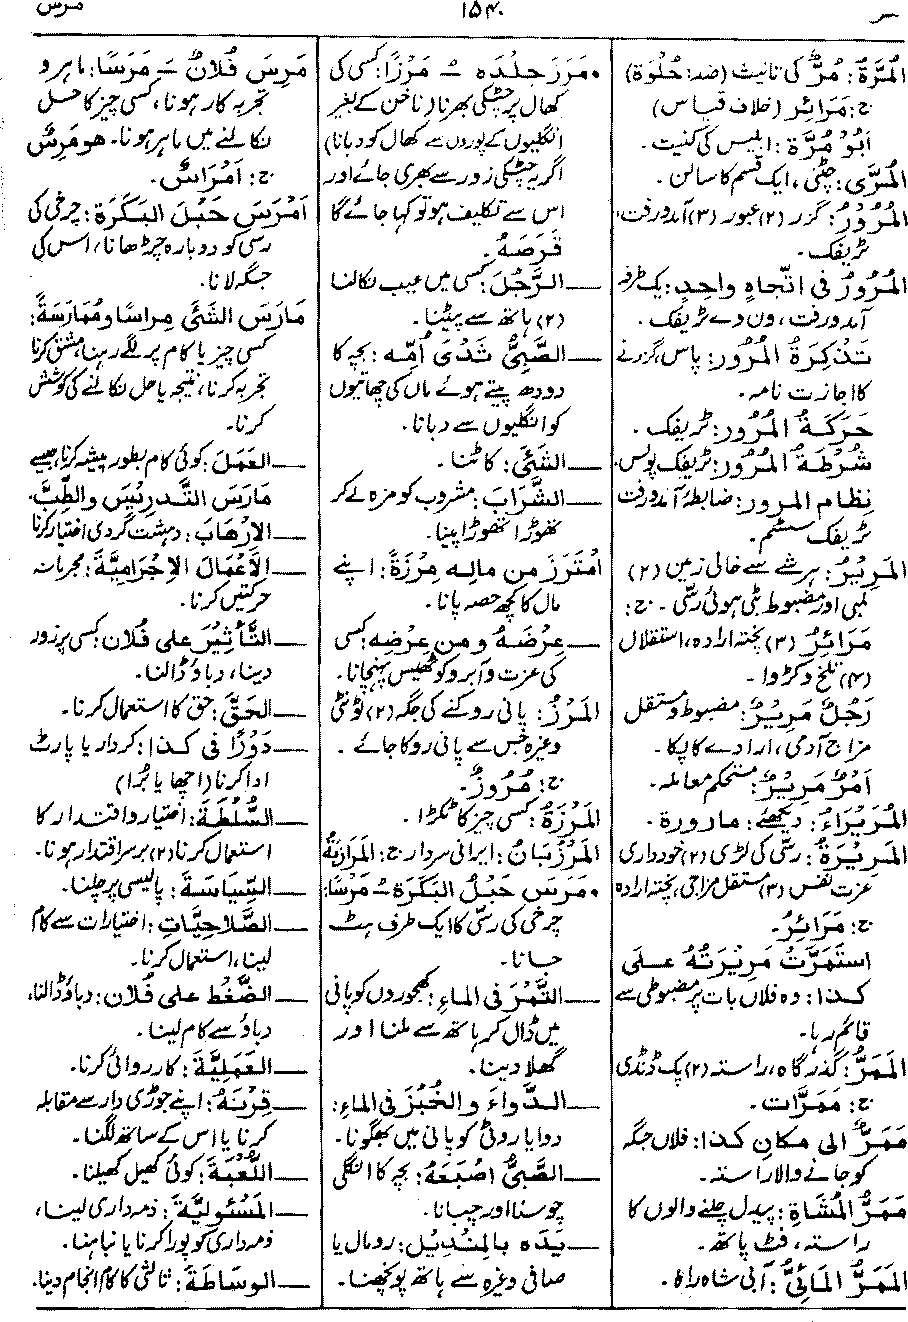 مر
۱۵۴۰
مرس
المُرَّةُ: مُرٌّ کی تانیث (ضد: حُلْوَة)
ج: مَرَائر (خلاف قیاس)
أبُوْ مُرَّة: ابلیس کی کنیت۔
المُرِّی: چٹنی، ایک قسم کا سالن۔
المُرُوْرُ: گزر (۲) عبور (۳) آمدورفت،
ٹریفک۔
المُرُوْرُ فی اتّجاهٍ واحِدٍ: یک طرفہ
آمدورفت، ون وے ٹریفک۔
تَذْکِرَةُ المُرُور: پاس، گزرنے
کا اجازت نامہ۔
حَرَکَةُ المُرُور: ٹریفک۔
شُرْطَةُ المُرُور: ٹریفک پولس۔
نِظام المرور: ضابطۂ آمدورفت
ٹریفک سسٹم۔
المَرِیْرُ: ہر شے سے خالی زمین (۲)
لمبی اور مضبوط بٹی ہوئی رسّی۔ ج:
مَرائرُ (۳) پختہ ارادہ، استقلال
(۴) تلخ و کڑوا۔
رَجُلٌ مَرِیْرٌ: مضبوط و مستقل
مزاج آدمی، ارادے کا پکا۔
أمْرٌ مَرِیْرٌ: مستحکم معاملہ۔
المُرَیْرَاءُ: دیکھئے: مارورة۔
المَرِیْرَةُ: رسّی کی لڑی (۲) خودداری
عزت نفس (۳) مستقل مزاجی، پختہ ارادہ
ج: مَرَائرُ۔
استَمَرَّتْ مَرِیْرَتُهُ عَلی
کذا: وہ فلاں بات پر مضبوطی سے
قائم رہا۔
المَمَرُّ: گذرگاہ، راستہ (۲) پک ڈنڈی
ج: مَمَرَّات۔
مَمَرٌّ الی مکانِ کذا: فلاں جگہ
کو جانے والا راستہ۔
مَمَرُّ المُشَاةِ: پیدل چلنے والوں کا
راستہ، فٹ پاتھ۔
المَمَرُّ المَائیُّ: آبی شاہراہ۔
• مَرَزَ جِلْدَه ـُ مَرْزًا: کسی کی
کھال پر چٹکی بھرنا (ناخن کے بغیر
انگلیوں کے پوروں سے کھال کو دبانا)
اگر یہ چٹکی زور سے بھری جائے اور
اس سے تکلیف ہو تو کہا جائے گا
قَرَصَهُ۔
ــ الرَّجُلَ: کسی میں عیب نکالنا
(۲) ہاتھ سے پیٹنا۔
ــ الصَّبِیُّ ثَدْیَ أُمِّه: بچہ کا
دودھ پیتے ہوئے ماں کی چھاتیوں
کو انگلیوں سے دبانا۔
ــ الشَّئَ: کاٹنا۔
ــ الشَّرَابَ: مشروب کو مزہ لے کر
تھوڑا تھوڑا پینا۔
امْتَرَزَ من مالِه مِرْزَةً: اپنے
مال کا کچھ حصہ پانا۔
ــ عِرْضَهُ و من عِرْضِه: کسی
کی عزت و آبرو کو ٹھیس پہنچانا۔
المَرْزُ: پانی روکنے کی جگہ (۲) لونٹی
وغیرہ جس سے پانی روکا جائے۔
ج: مُرُوزٌ۔
المَرْزَةُ: کسی چیز کا ٹکڑا۔
المَرْزُبَانُ: ایرانی سردار ج: المَرَازِبَةُ
• مَرَسَ حَبْلُ البَکَرَة ـُ مَرْسًا:
چرخی کی رسّی کا ایک طرف ہٹ
جانا۔
ــ التَّمْرَ فی الماءِ: کھجوروں کو پانی
میں ڈال کر ہاتھ سے ملنا اور
گھلا دینا۔
ــ الدَّواءَ والخُبْزَ فی الماءِ:
دوا یا روٹی کو پانی میں بھگونا۔
ــ الصَّبِیُّ اصْبَعَهُ: بچہ کا انگلی
چوسنا اور چبانا۔
ــ یَدَه بالمِنْدِیْل: رومال یا
صافی وغیرہ سے ہاتھ پونچھنا۔
مَرِسَ فُلانٌ ـَ مَرَسًا: ماہر و
تجربہ کار ہونا، کسی چیز کا حل
نکالنے میں ماہر ہونا۔ هو مَرِسٌ
ج: أمْرَاسٌ۔
أمْرَسَ حَبْلَ البَکَرَة: چرخی کی
رسی کو دوبارہ چڑھانا، اس کی
جگہ لانا۔
مَارَسَ الشَّئَ مِراسًا ومُمَارَسَةً:
کسی چیز یا کام پر لگے رہنا، مشق کرنا
تجربہ کرنا، نتیجہ یا حل نکالنے کی کوشش
کرنا۔
ــ العَمَلَ: کوئی کام بطور پیشہ کرنا، جیسے
مَارَسَ التَّدرِیْسَ والطِّبَّ۔
ــ الإرْهَابَ: دہشت گردی اختیار کرنا
ــ الأَعْمَالَ الإجْرَامِیَّةَ: مجرمانہ
حرکتیں کرنا۔
ــ التَّأثِیْرَ علی فُلان: کسی پر زور
دینا، دباؤ ڈالنا۔
ــ الحَقَّ: حق کا استعمال کرنا۔
ــ دَوْرًا فی کذا: کردار یا پارٹ
ادا کرنا (اچھا یا بُرا)
ــ السُّلْطَةَ: اختیار و اقتدار کا
استعمال کرنا (۲) برسر اقتدار ہونا۔
ــ السِّیَاسَةَ: پالیسی پر چلنا۔
ــ الصَّلاحِیَّاتِ: اختیارات سے کام
لینا، استعمال کرنا۔
ــ الضَّغْطَ علی فُلان: دباؤ ڈالنا،
دباؤ سے کام لینا۔
ــ العَمَلِیَّةَ: کارروائی کرنا۔
ــ قِرْنَهُ: اپنے جوڑی دار سے مقابلہ
کرنا یا اس کے ساتھ لگنا۔
ــ اللُّعْبَةَ: کوئی کھیل کھیلنا۔
ــ المَسْئُولِیَّةَ: ذمہ داری لینا،
ذمہ داری کو پورا کرنا یا نباہنا۔
ــ الوِسَاطَةَ: ثالثی کا کام انجام دینا۔